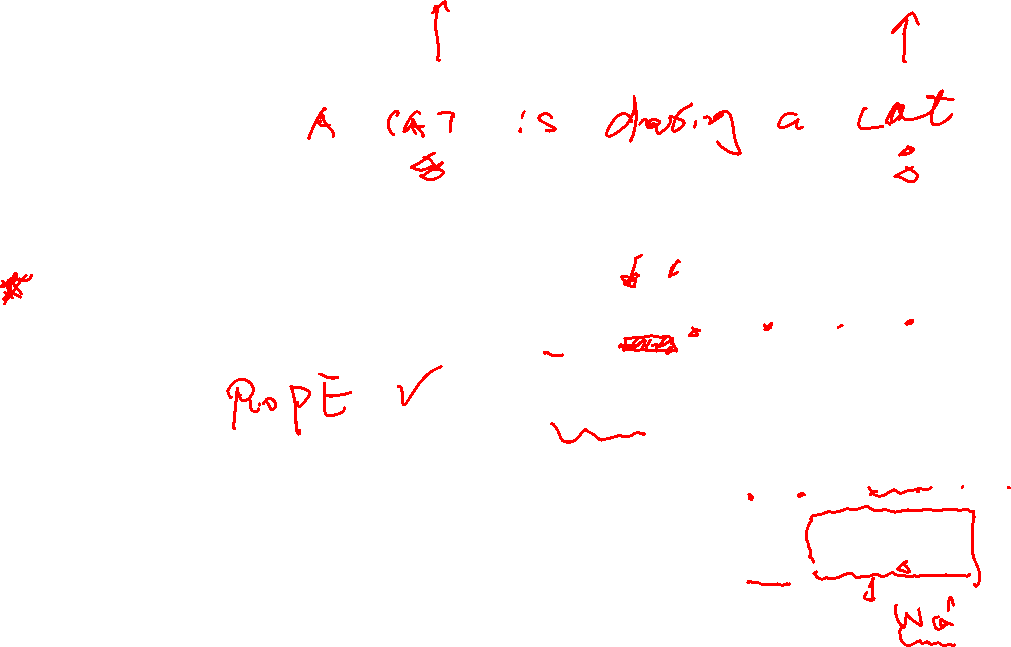 A CAT is drawing a cat
RoPE ✓